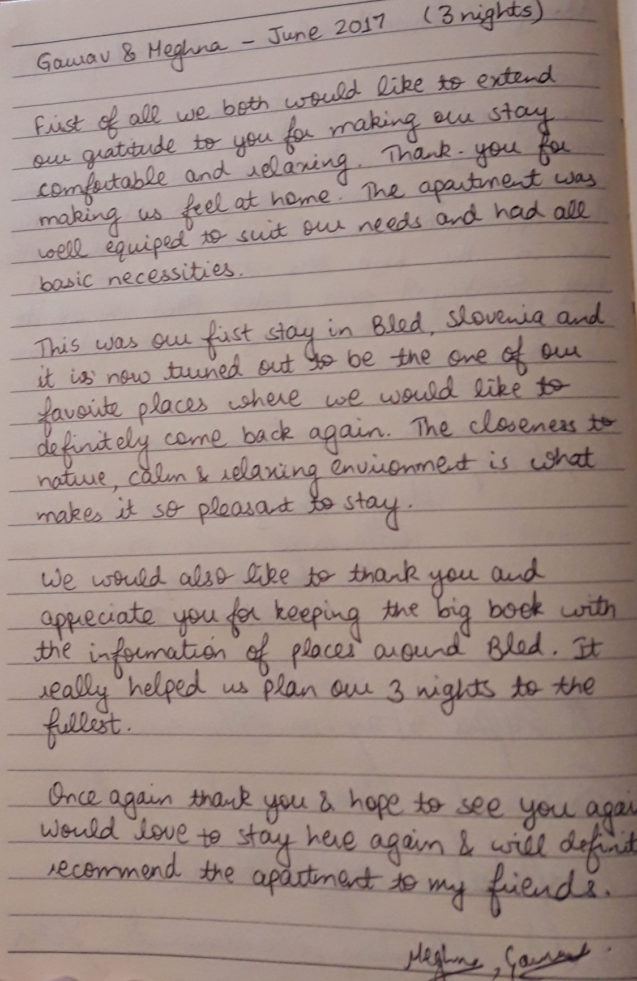 Gaurav & Meghna - June 2017 (3 nights)
First of all we both would like to extend
our gratitude to you for making our stay
comfortable and relaxing. Thank-you for
making us feel at home. The apartment was
well equiped to suit our needs and had all
basic necessities.
This was our first stay in Bled, Slovenia and
it is now turned out to be the one of our
favorite places where we would like to
definitely come back again. The closeness to
nature, calm & relaxing environment is what
makes it so pleasant to stay.
We would also like to thank you and
appreciate you for keeping the big book with
the information of places around Bled. It
really helped us plan our 3 nights to the
fullest.
Once again thank you & hope to see you agai
would love to stay here again & will definit
recommend the apartment to my friends.
Meghna, Gaurav